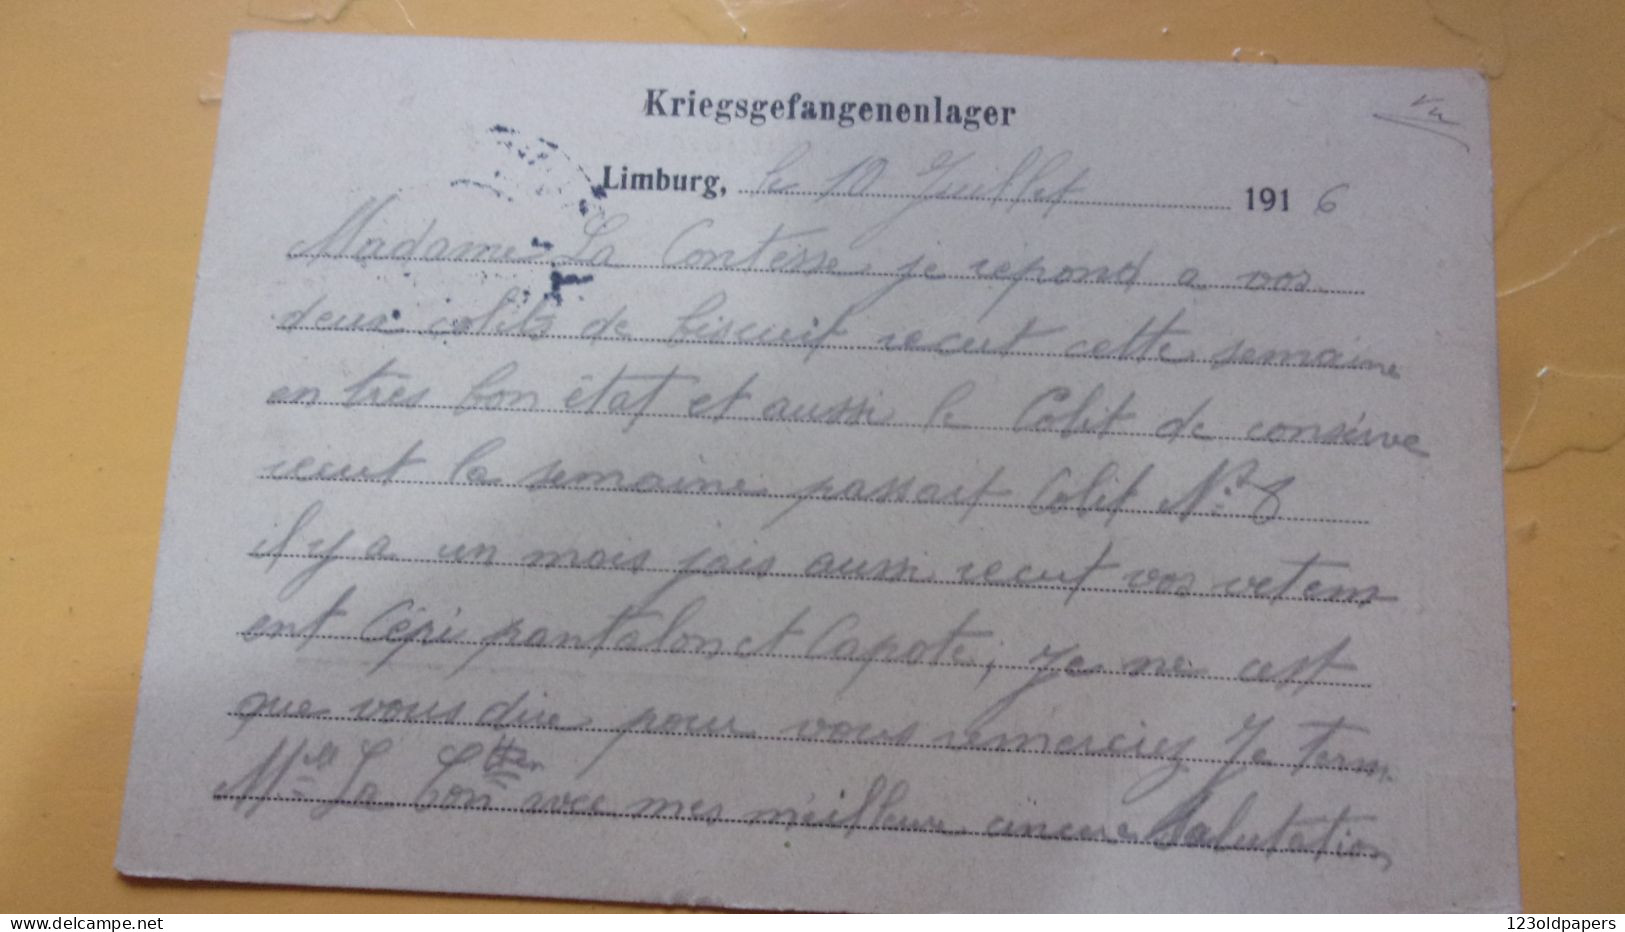 Kriegsgefangenenlager
Limburg, le 10 Juillet 1916
Madame La Contesse je repond a vos
deux colits de biscuit recut cette semaine
en très bon état et aussi le Colit de conserve
recut la semaine passait Colit No 8
il y a un mois jais aussi recut vos vetem
ent Cépi pantalon et Capote, je ne cest
que vous dire pour vous remerciez Je term
Mme La Con avec mes meilleure cincere Salutation
123oldpapers
www.delcampe.net